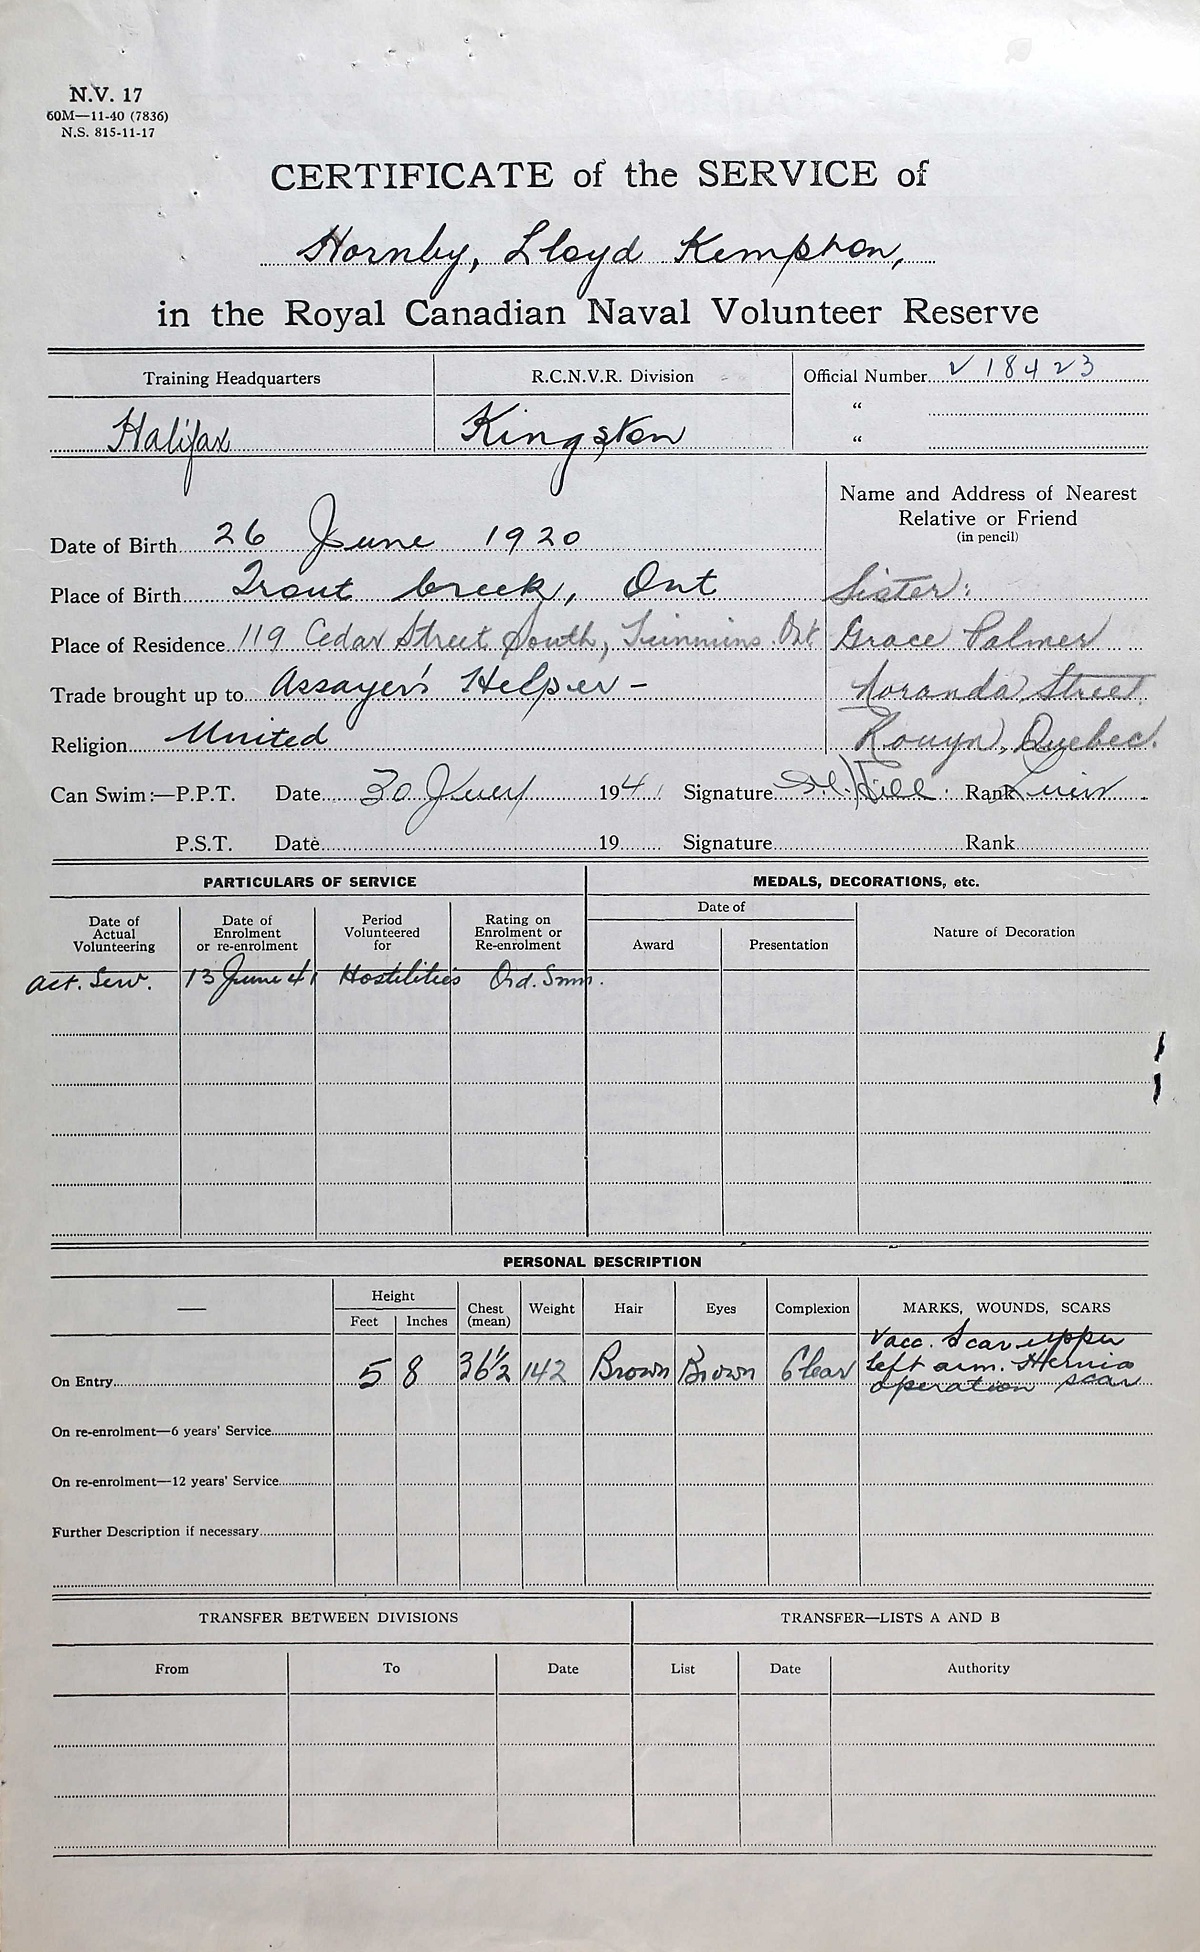 N.V. 17
60M—11-40 (7836)
N.S. 815-11-17
CERTIFICATE of the SERVICE of
Hornby, Lloyd Kempton,
in the Royal Canadian Naval Volunteer Reserve
Training Headquarters R.C.N.V.R. Division Official Number V 18423
Halifax Kingston
"
"
Name and Address of Nearest
Relative or Friend
(in pencil)
Date of Birth 26 June 1920
Place of Birth Trout Creek, Ont Sister:
Place of Residence 119 Cedar Street South, Timmins. Ont Grace Palmer
Trade brought up to Assayer's Helper - Noranda Street
Religion United Rouyn, Quebec.
Can Swim:—P.P.T. Date 30 July 1941 Signature Hill Rank
P.S.T. Date 19 Signature Rank
PARTICULARS OF SERVICE MEDALS, DECORATIONS, etc.
Date of Actual Volunteering Date of Enrolment or re-enrolment Period Volunteered for Rating on Enrolment or Re-enrolment Date of Nature of Decoration
Award Presentation
Act. Serv. 13 June 41 Hostilities Ord. Smn.
PERSONAL DESCRIPTION
— Height Chest (mean) Weight Hair Eyes Complexion MARKS, WOUNDS, SCARS
Feet Inches
On Entry 5 8 36½ 142 Brown Brown Clear Vacc. Scar upper
left arm. Hernia
operation scar
On re-enrolment—6 years' Service
On re-enrolment—12 years' Service
Further Description if necessary
TRANSFER BETWEEN DIVISIONS TRANSFER—LISTS A AND B
From To Date List Date Authority